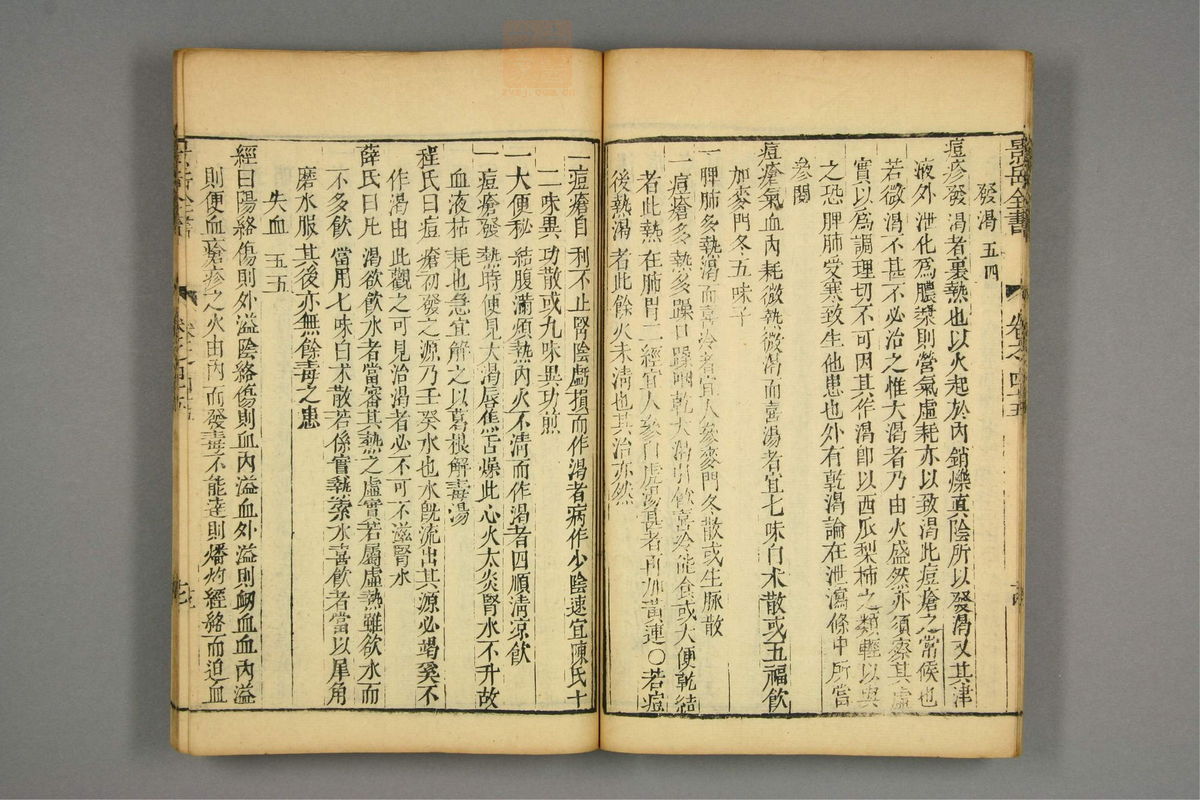 景岳全書 卷之四十五
發渴 五四
痘疹發渴者裏熱也以火起於內銷爍真陰所以發渴又其津
液外泄化為膿漿則營氣虛耗亦以致渴此痘瘡之常候也
若微渴不甚不必治之惟大渴者乃由火盛然亦須察其虛
實以為調理切不可因其作渴卽以西瓜梨柿之類輕以與
之恐脾肺受寒致生他患也外有乾渴論在泄瀉條中所當
參閱
痘瘡氣血內耗微熱微渴而喜湯者宜七味白术散或五福飲
加麥門冬五味子
一脾肺多熱渴而喜冷者宜人參麥門冬散或生脈散
一痘瘡多熱多躁口躁咽乾大渴引飲喜冷能食或大便乾結
者此熱在肺胃二經宜人參白虎湯甚者再加黃連〇若痘
後熱渴者此餘火未淸也其治亦然
一痘瘡自利不止腎陰虧損而作渴者病作少陰速宜陳氏十
二味異功散或九味異功煎
一大便秘結腹滿煩熱內火不淸而作渴者四順淸凉飲
一痘瘡發熱時便見大渴唇焦舌燥此心火太炎腎水不升故
血液枯耗也急宜解之以葛根解毒湯
程氏曰痘瘡初發之源乃壬癸水也水旣流出其源必竭奚不
作渴由此觀之可見治渴者必不可不滋腎水
薛氏曰凡渴欲飲水者當審其熱之虛實若屬虛熱雖飲水而
不多飲當用七味白术散若係實熱索水喜飲者當以犀角
磨水服其後亦無餘毒之患
失血 五五
經曰陽絡傷則外溢陰絡傷則血內溢血外溢則衂血血內溢
則便血瘡疹之火由內而發毒不能達則燔灼經絡而迫血